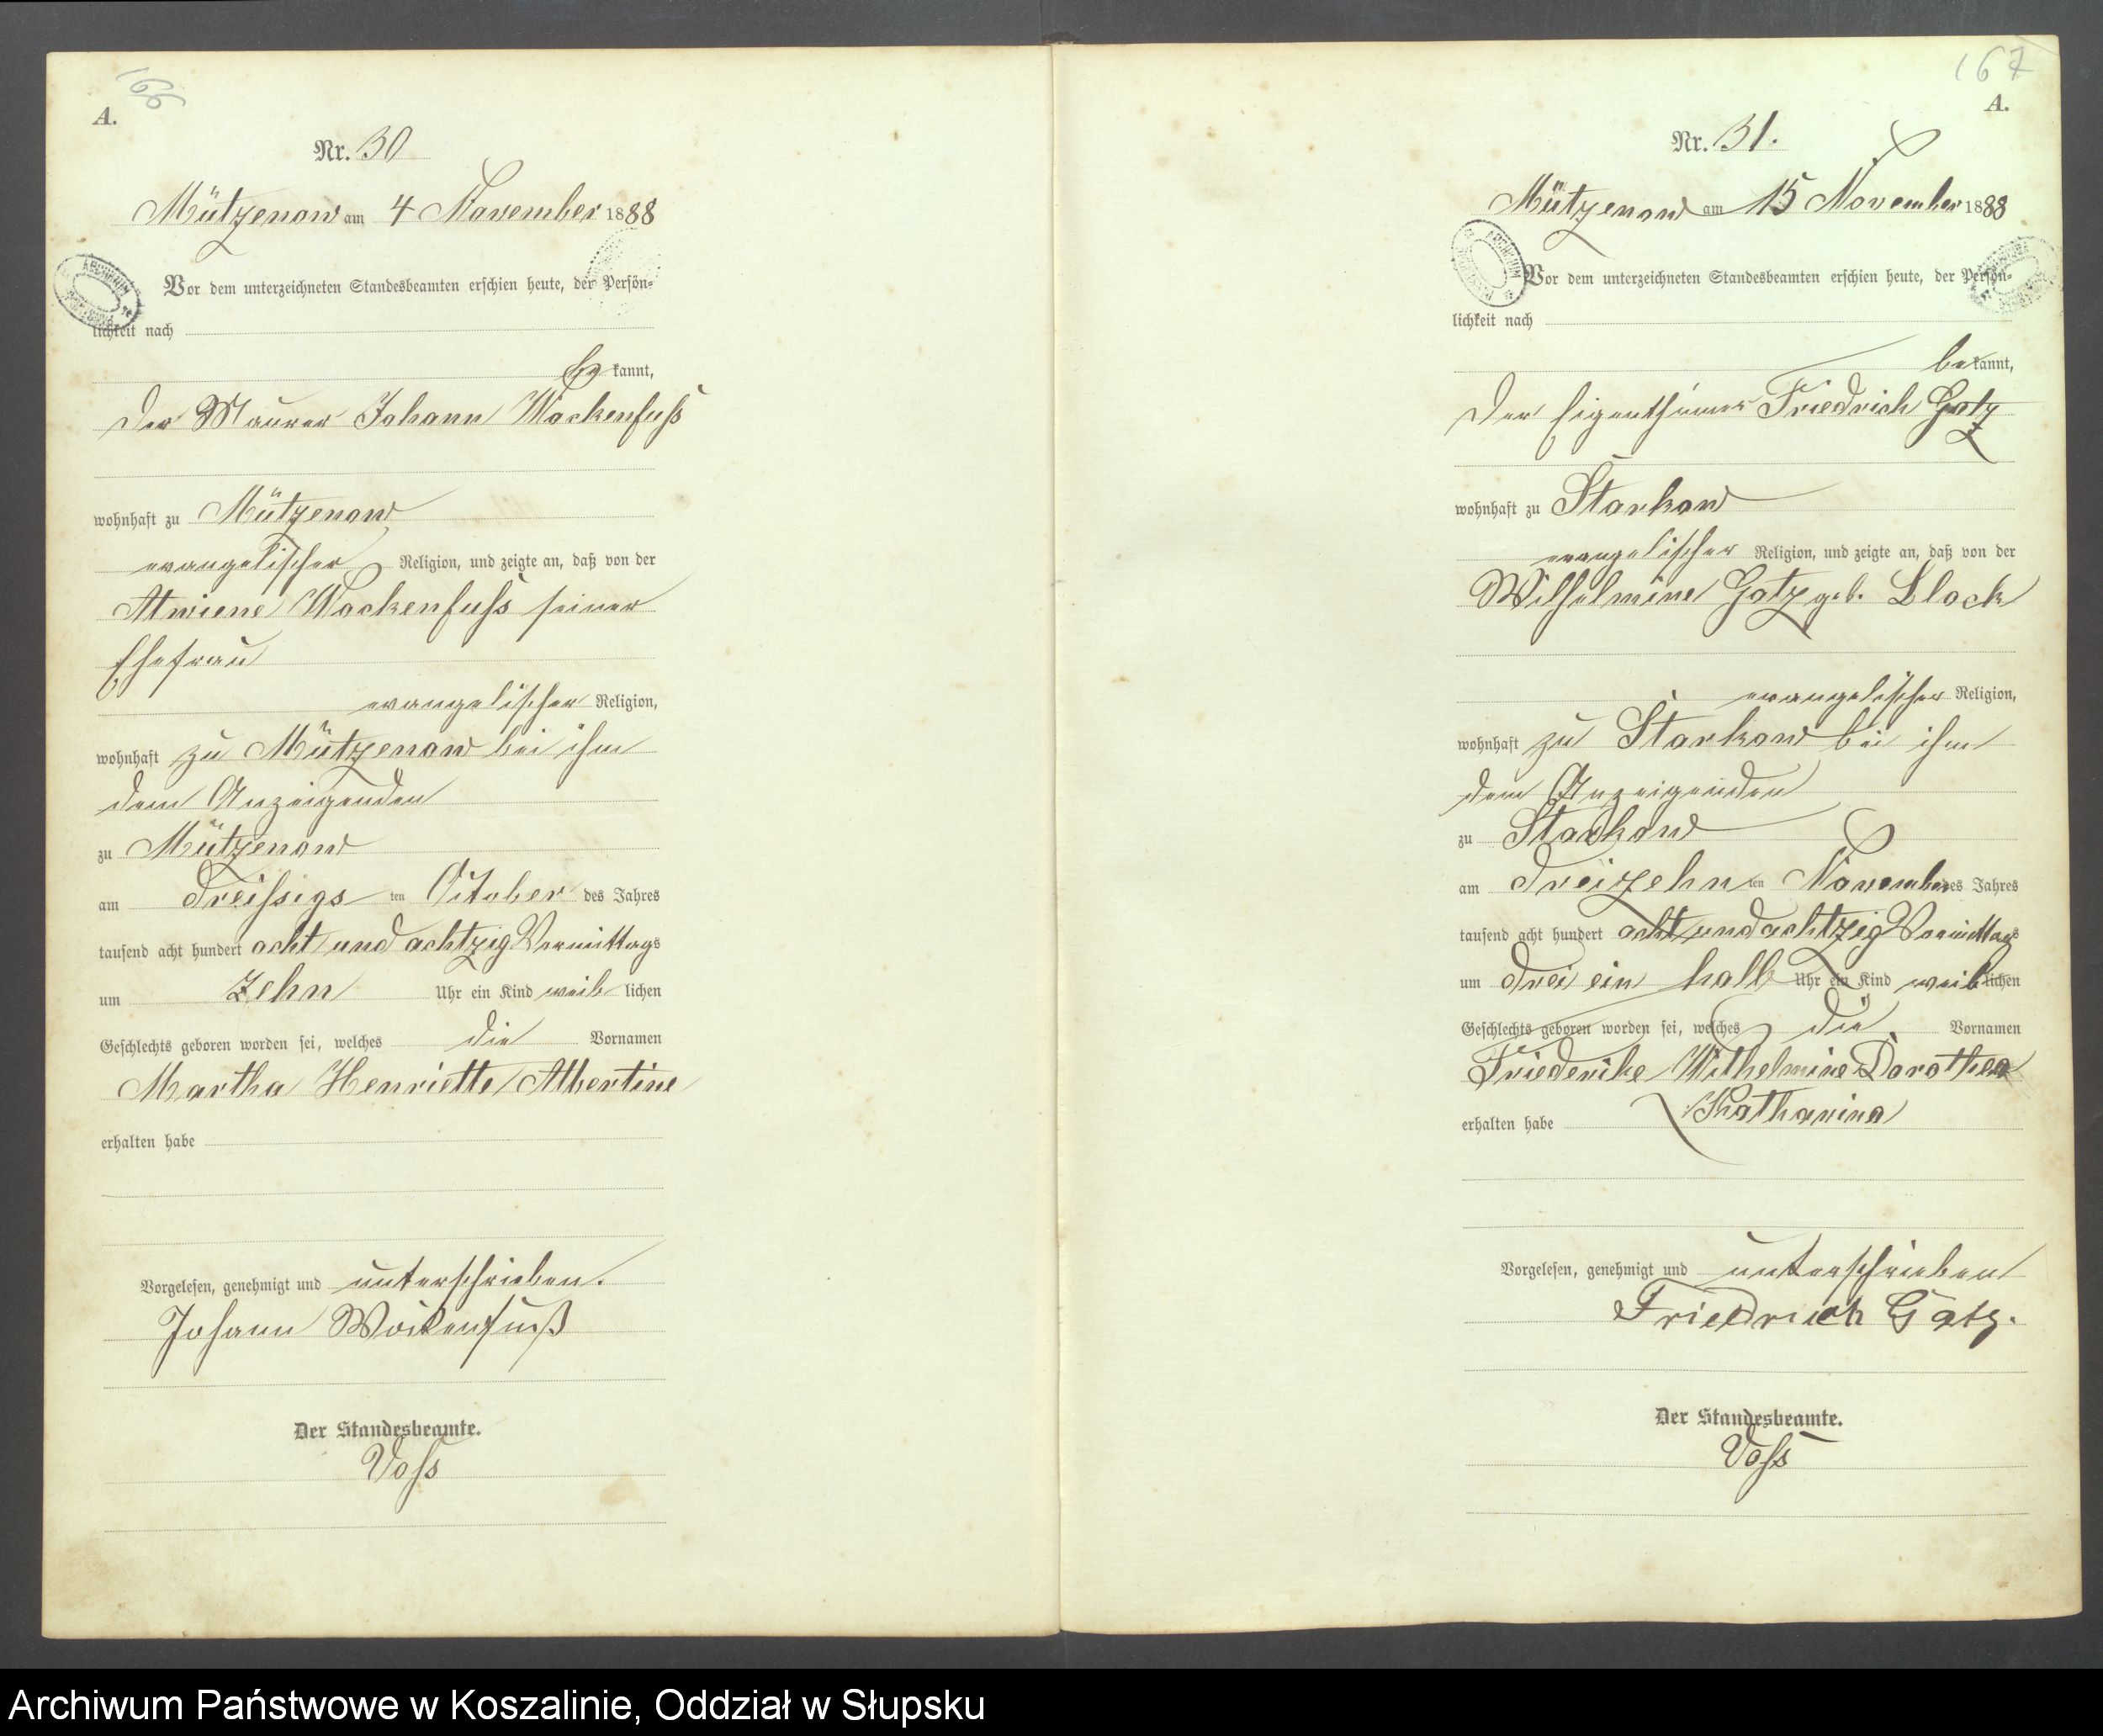 166
A.
Nr. 30
Mützenow am 4 November 1888
Vor dem unterzeichneten Standesbeamten erschien heute, der Persön-
lichkeit nach
be kannt,
der Maurer Johann Wockenfuss
wohnhaft zu Mützenow
evangelischer Religion, und zeigte an, daß von der
Wockenfuss seiner
Ehefrau
evangelischer Religion,
wohnhaft zu Mützenow bei ihm
dem Anzeigenden
zu Mützenow
am dreissigs ten October des Jahres
tausend acht hundert acht und achtzig Vormittags
um zehn Uhr ein Kind weib lichen
Geschlechts geboren worden sei, welches die Vornamen
Martha Henriette Albertine
erhalten habe
Vorgelesen, genehmigt und unterschrieben.
Johann Wockenfuß
Der Standesbeamte.
Voss
167
A.
Nr. 31.
Mützenow am 15 November 1888
Vor dem unterzeichneten Standesbeamten erschien heute, der Persön-
lichkeit nach
bekannt,
der Eigenthümer Friedrich Gotz
wohnhaft zu Starkow
evangelischer Religion, und zeigte an, daß von der
Wilhelmine Gotz geb. Block
evangelischer Religion,
wohnhaft zu Starkow bei ihm
dem Anzeigenden
zu Starkow
am dreizehn ten November des Jahres
tausend acht hundert acht und achtzig Vormittags
um drei ein halb Uhr ein Kind weiblichen
Geschlechts geboren worden sei, welches die Vornamen
Friederike Wilhelmine Dorothea
Katharina
erhalten habe
Vorgelesen, genehmigt und unterschrieben
Friedrich Gotz.
Der Standesbeamte.
Voss
Archiwum Państwowe w Koszalinie, Oddział w Słupsku